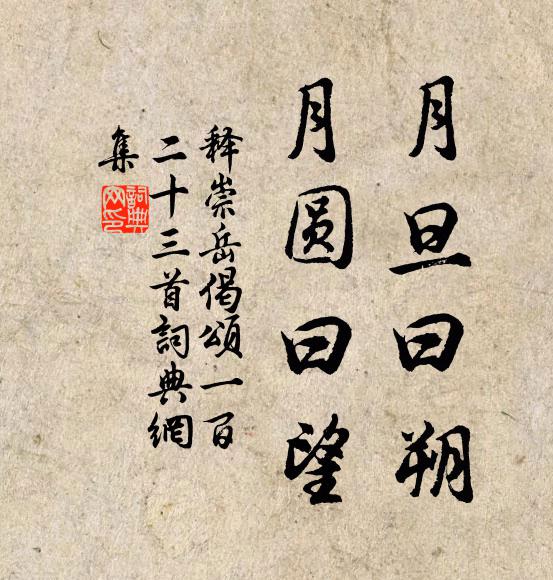 月旦曰朔
月圆曰望
释崇岳偈頌一百
二十三首詞典網
集
詞典网印